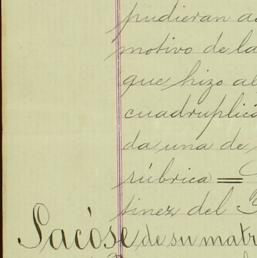 pudieran
motivo de la
que hizo al
cuadruplica
da una de
rúbrica =
tinez del
Sacóse de su matr